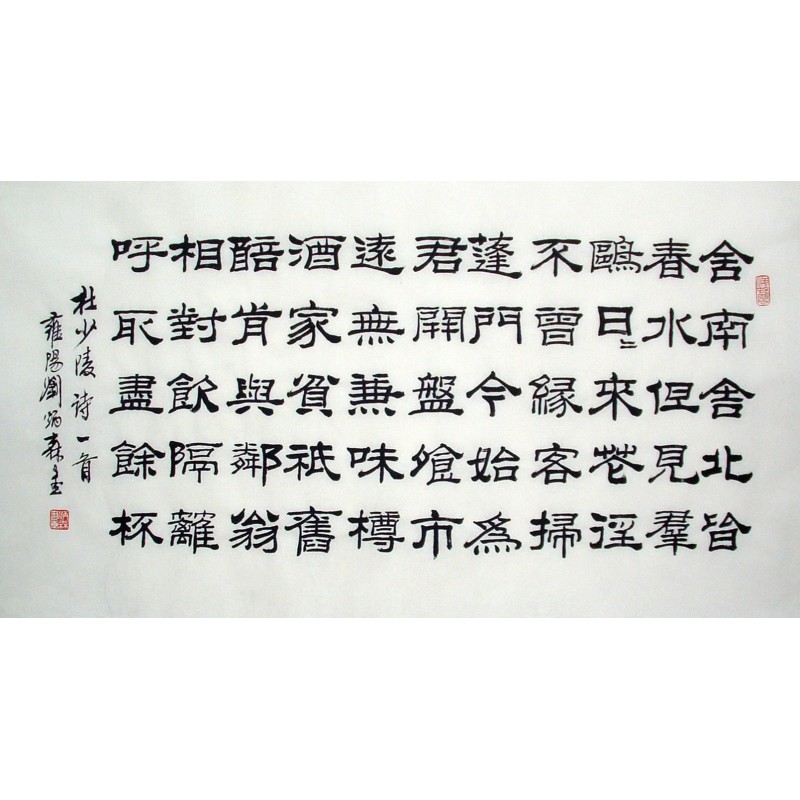 舍南舍北皆
春水但見羣
鷗日〻來花徑
不曾緣客掃
蓬門今始爲
君開盤飧市
遠無兼味樽
酒家貧祇舊
醅肯與鄰翁
相對飲隔籬
呼取盡餘杯
杜少陵诗一首
雍陽劉炳森書